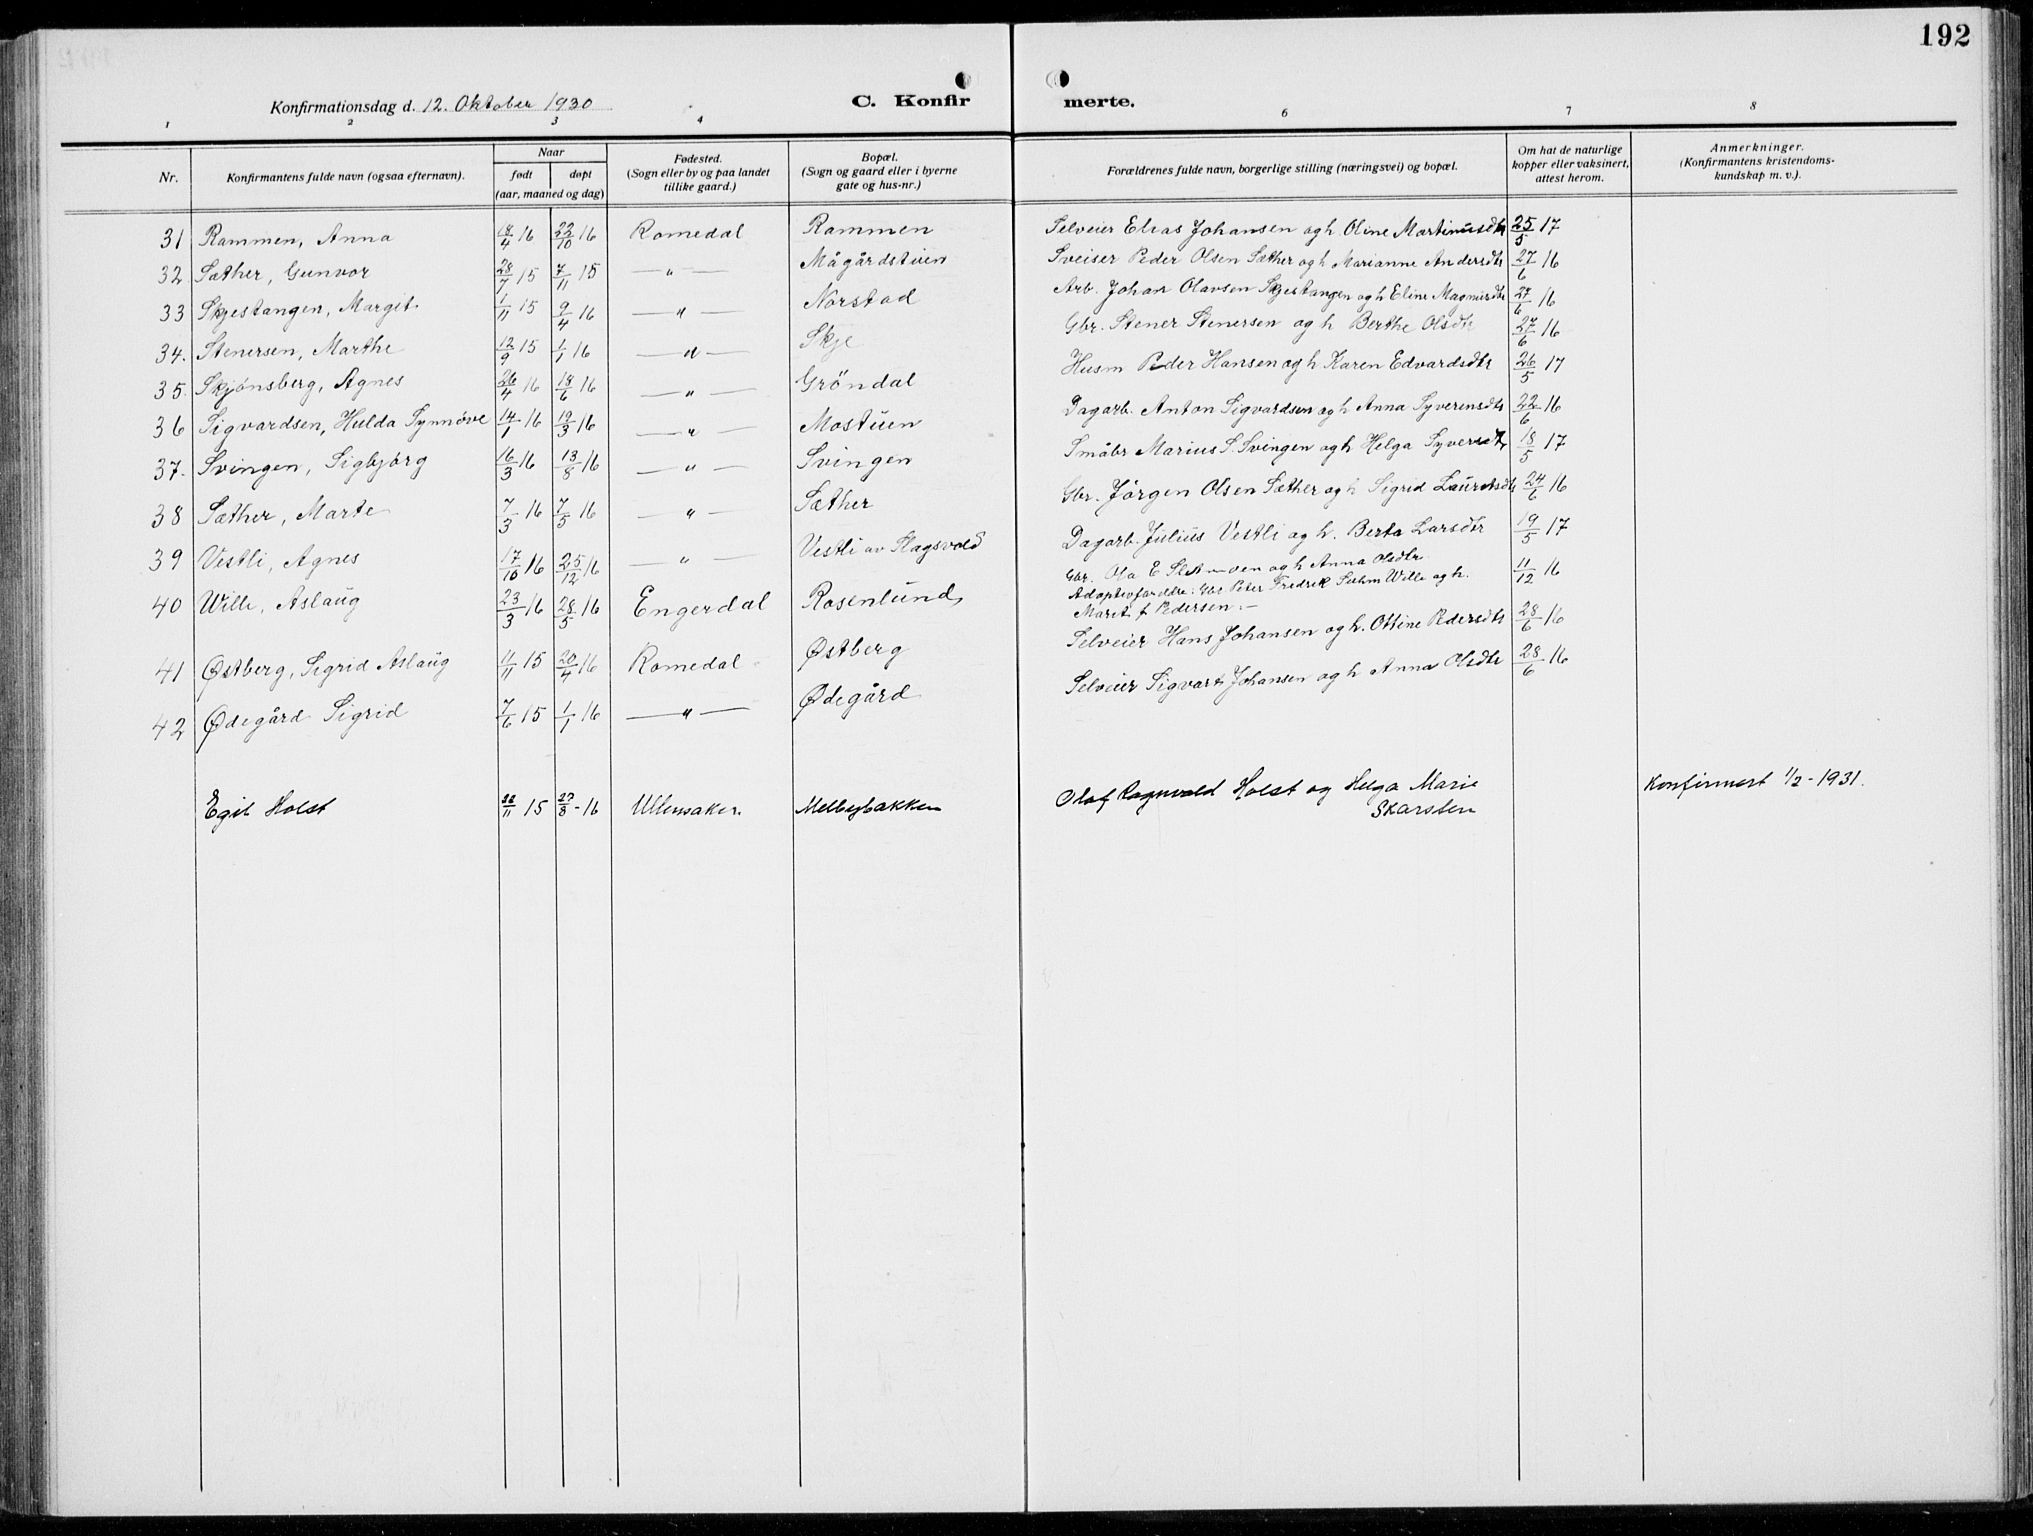 192
Konfirmationsdag d. 12. Oktober 1930
C. Konfirmerte.
1 2 3 4 6 7 8
Nr. Konfirmantens fulde navn (ogsaa efternavn). Naar født døpt (aar, maaned og dag) Fødested. (Sogn eller by og paa landet tillike gaard.) Bopæl. (Sogn og gaard eller i byerne gate og hus-nr.) Forældrenes fulde navn, borgerlige stilling (næringsvei) og bopæl. Om hat de naturlige kopper eller vaksinert, attest herom. Anmerkninger. (Konfirmantens kristendoms-kundskap m. v.).
31 Rammen, Anna 18/4 16 22/10 16 Romedal Rammen Selveier Elias Johansen og h. Oline Martinusdtr 25/5 17
32 Sæther, Gunvor 28/7 15 7/11 15 — " — Mågårdstuen Sveiser Peder Olsen Sæther og h Marianne Andersdtr 27/6 16
33 Skjestangen, Margit 1/11 15 9/4 16 — " — Norstad Arb. Johan Olavsen Skjestangen og h Eline Magnusdtr 27/6 16
34. Stenersen, Marthe 12/9 15 1/1 16 — " — Skje Gbr. Stener Stenersen og h Berthe Olsdtr 27/6 16
35. Skjønsberg, Agnes 26/4 16 18/6 16 — " — Gröndal Husm Peder Hansen og h Karen Edvardsdtr 26/5 17
36 Sigvardsen, Hulda Synnøve 14/1 16 19/3 16 — " — Mostuen Dagarb. Anton Sigvardsen og h Anna Syverensdtr 22/6 16
37. Svingen, Sigbjørg 16/3 16 13/8 16 — " — Svingen Småbr Marius S. Svingen og h Helga Syversdtr 18/5 17
38 Sæther, Marte 7/3 16 7/5 16 — " — Sæther Gbr. Jörgen Olsen Sæther og h Sigrid Lauritsdtr 24/6 16
39 Vestli, Agnes 17/10 16 25/12 16 — " — Vestli av Slagsvold Dagarb. Julius Vestli og h. Berta Larsdtr 19/5 17
40 Wille, Aslaug 23/3 16 28/5 16 Engerdal Rosenlund Gbr. Ola E og h Anna Olsdtr 11/12 16
Adoptivforeldre: Gbr Peter Fredrik Wille og h.
Marit f Pedersen.—
41 Østberg, Sigrid Aslaug 11/11 15 20/4 16 Romedal Østberg Selveier Hans Johansen og h. Ottine Pedersdtr 28/6 16
42 Ødegård Sigrid 7/6 15 1/1 16 — " — Ødegård Selveier Sigvart Johansen og h Anna Olsdtr 28/6 16
Egil Holst 22/11 15 27/8 - 16 Ullensaker Melbybakken Olaf Ragnvald Holst og Helga Marie Konfirmert 1/2 - 1931.
Skarsten